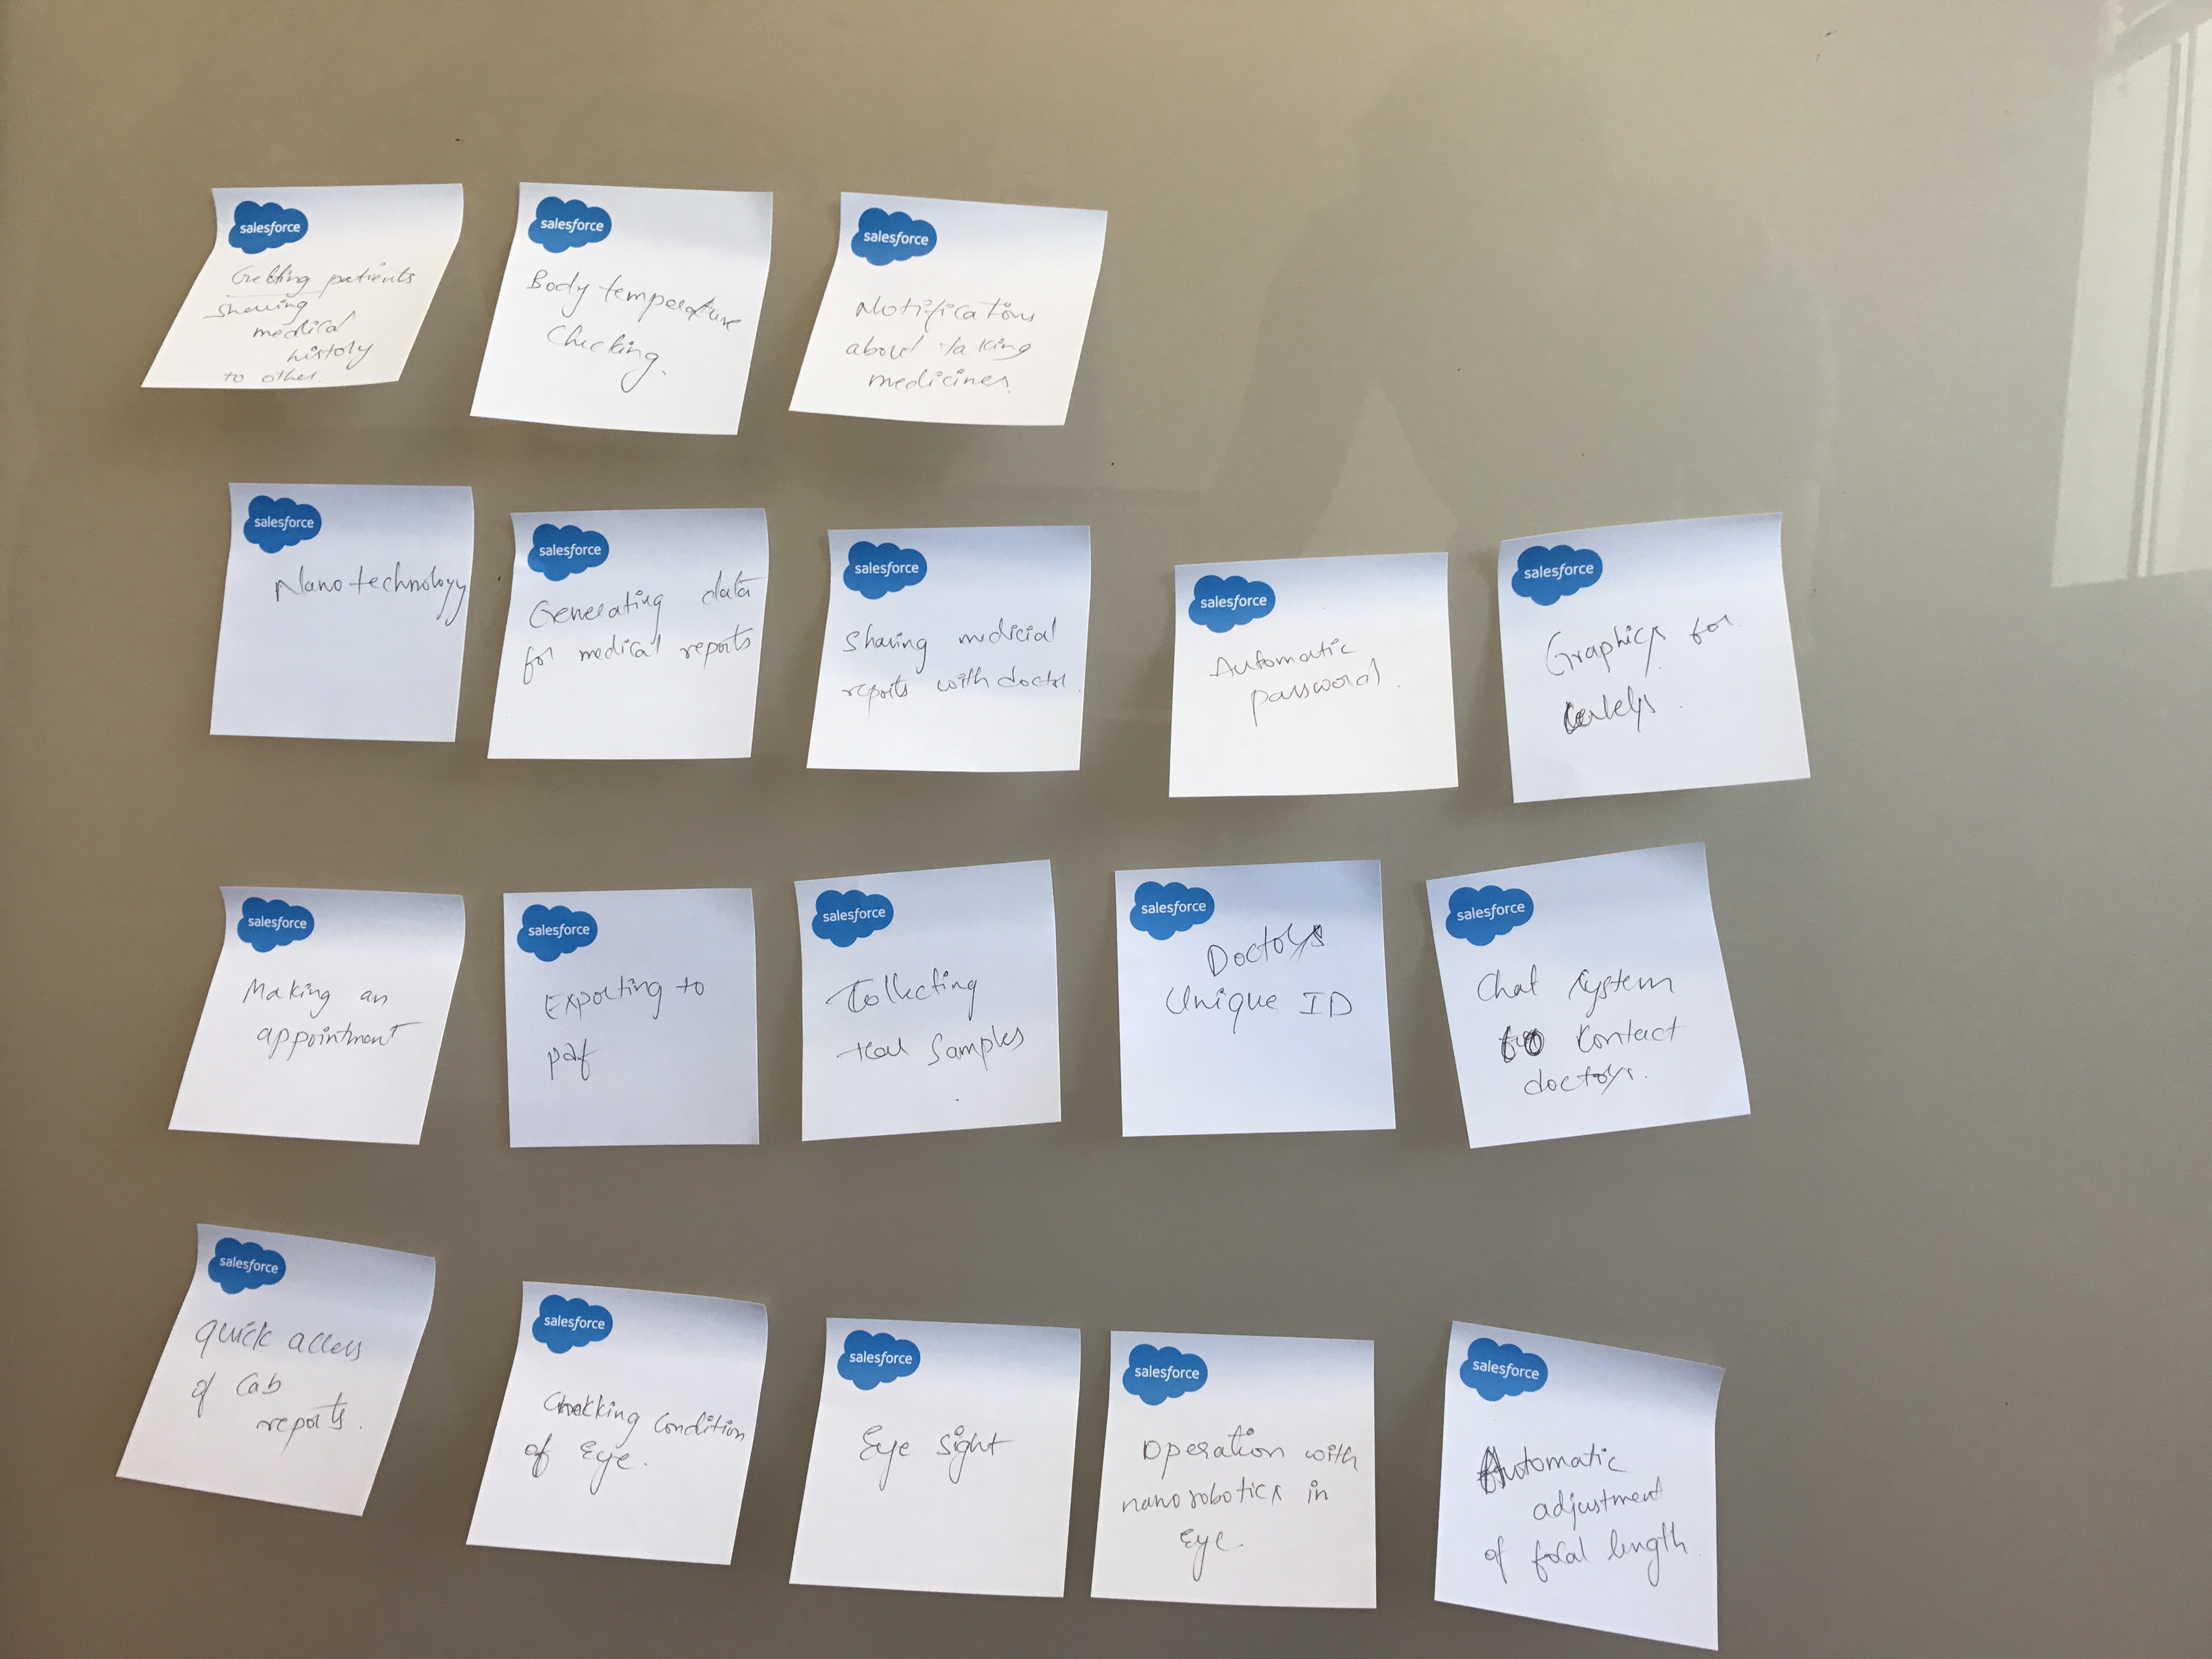 salesforce
Getting patients
sharing
medical
history
to other.
salesforce
Body temperature
checking.
salesforce
Notifications
about taking
medicines.
salesforce
Nanotechnology
salesforce
Generating data
for medical reports
salesforce
Sharing medicial
reports with doctor.
salesforce
Automatic
password.
salesforce
Graphics for
salesforce
Making an
appointment
salesforce
Exporting to
pdf
salesforce
Collecting
tear samples
salesforce
Doctors
Unique ID
salesforce
Chat system
to contact
doctors.
salesforce
quick access
of Lab
reports.
salesforce
Checking condition
of Eye.
salesforce
Eye sight
salesforce
Operation with
nanorobotics in
Eye.
salesforce
Automatic
adjustment
of focal length